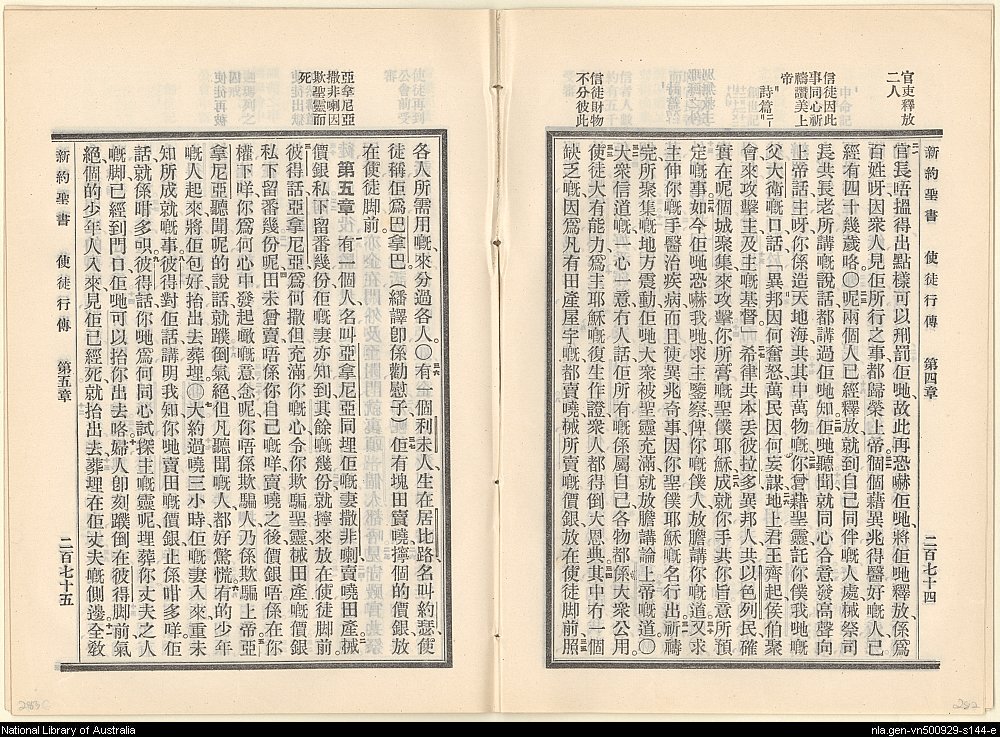 官吏釋放
二人
信徒因此
事同心祈
禱讚美上
帝
詩篇二
信徒財物
不分彼此
新約聖書 使徒行傳 第四章 二百七十四
官長唔搵得出點樣可以刑罰佢哋故此再恐嚇佢哋將佢哋釋放係爲
百姓呀因衆人見佢所行之事都歸榮上帝個個藉異兆得醫好嘅人已
經有四十幾歲咯〇呢兩個人已經釋放就到自己同伴嘅人處㨢祭司
長共長老所講嘅說話都講過佢哋知佢哋聽聞就同心合意發高聲向
上帝話主呀你係造天地海共其中萬物嘅你曾藉聖靈託你僕我哋嘅
父大衛嘅口話異邦人因何奮怒萬民因何妄謀地上君王齊起侯伯聚
會來攻擊主及主嘅基督希律共本丟彼拉多異邦人共以色列民確
實在呢個城聚集來攻擊你所膏嘅聖僕耶穌成就你手共你旨意所預
定嘅事如今佢哋恐嚇我哋求主鑒察俾你嘅僕人放膽講你嘅道又求
主伸你嘅手醫治疾病而且使異兆奇事因你聖僕耶穌嘅名行出〇祈禱
完所聚集嘅地方震動佢哋大衆被聖靈充滿就放膽講論上帝嘅道〇
大衆信道嘅一心一意有人話佢所有嘅係屬自己各物都係大衆公用
使徒大有能力爲主耶穌嘅復生作證衆人都得倒大恩典其中有一個
缺乏嘅因爲凡有田產屋宇嘅都賣曉㨢所賣嘅價銀放在使徒脚前照
亞拿尼亞
撒非喇因
欺聖靈而
死
各人所需用嘅來分過各人〇有一個利未人生在居比路名叫約瑟使
徒稱佢爲巴拿巴（繙譯卽係勸慰子）佢有塊田賣曉擰個的價銀放
在使徒脚前
第五章 有一個人名叫亞拿尼亞同埋佢嘅妻撒非喇賣曉田產㨢
價銀私下留番幾份佢嘅妻亦知到其餘嘅幾份就擰來放在使徒脚前
彼得話亞拿尼亞爲何撒但充滿你嘅心令你欺騙聖靈㨢田產嘅價銀
私下留番幾份呢田未曾賣唔係你自己嘅咩賣曉之後價銀唔係在你
權下咩你爲何心中發起噉嘅意念呢你唔係欺騙人乃係欺騙上帝亞
拿尼亞聽聞呢的說話就蹼倒氣絕但凡聽聞嘅人都好驚慌有的少年
嘅人起來將佢包好抬出去葬埋〇大約過曉三小時佢嘅妻入來重未
知所成就嘅事彼得對佢話講明我知你哋賣田嘅價銀止係咁多咩佢
話就係咁多呮彼得話你哋爲何同心試探主嘅靈呢埋葬你丈夫之人
嘅脚已經到門口佢哋可以抬你出去咯婦人卽刻蹼倒在彼得脚前氣
絕個的少年人入來見佢已經死就抬出去葬埋在佢丈夫嘅側邊全敎
新約聖書 使徒行傳 第五章 二百七十五
National Library of Australia
nla.gen-vn500929-s144-e